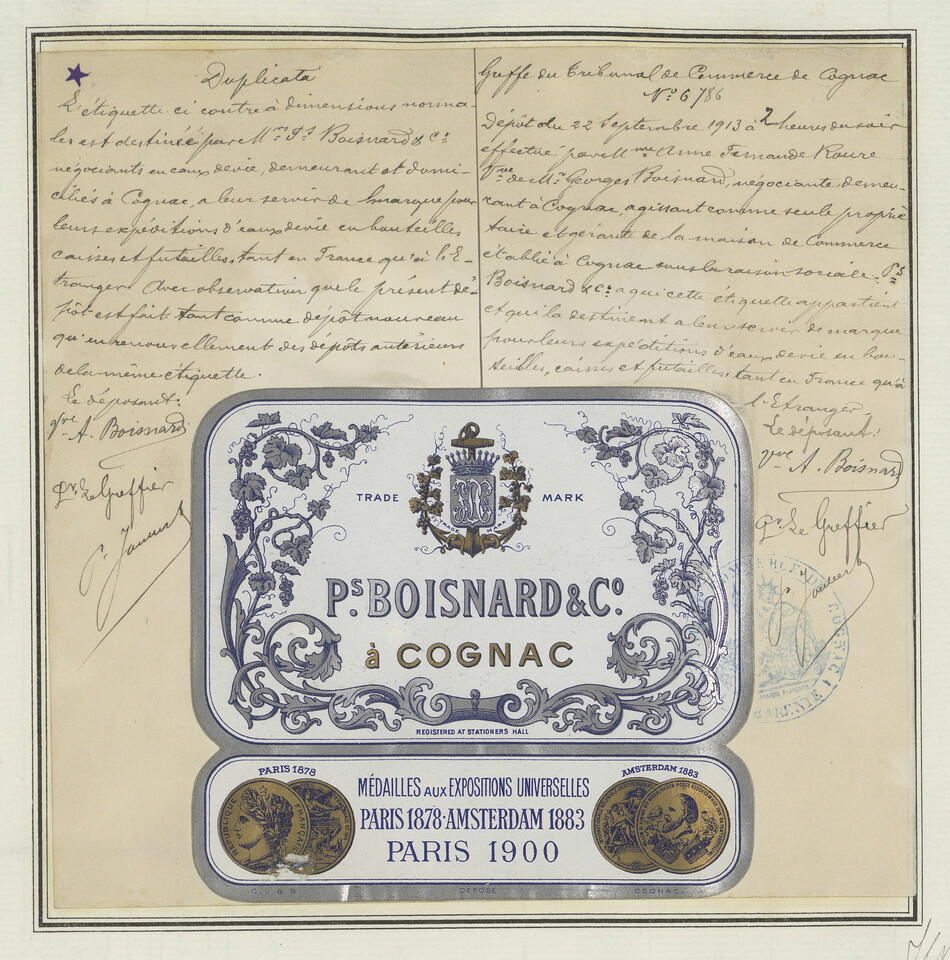 Duplicata
L'étiquette ci contre à dimensions norma-
les est destinée par Mm. Ps Boisnard & Co
négociants en eaux de vie, demeurant et domi-
ciliés à Cognac, a leur servir de marque pour
leurs expéditions d'eaux de vie en bouteilles
caisses et futailles, tant en France qu'à l'E-
tranger. Avec observation que le présent dé-
pôt est fait tant comme dépôt nouveau
qu'en renouvellement des dépôts antérieurs
de la même étiquette.
Le déposant:
Vve A. Boisnard
Pr. Le Greffier
Greffe du Tribunal de Commerce de Cognac
No 6786
Dépôt du 22 Septembre 1913 à 2 heures du soir
effectué par Mme Anne Fernande Roure
Vve de Mr Georges Boisnard, négociante, demeu-
rant à Cognac, agissant comme seule proprié
taire et gérante de la maison de Commerce
établie à Cognac sous la raison sociale Ps
Boisnard & Co a qui cette étiquette appartient
et qui la destinent a leur servir de marque
pour leurs expéditions d'eaux de vie en bou-
teilles, caisses et futailles, tant en France qu'à
l'Etranger.
Le déposant:
Vve A. Boisnard
Pr Le Greffier
TRADE MARK
TRADE MARK
Ps. BOISNARD & Co.
à COGNAC
REGISTERED AT STATIONERS HALL
COGNAC
PARIS 1878
RÉPUBLIQUE FRANÇAISE
MÉDAILLES AUX EXPOSITIONS UNIVERSELLES
PARIS 1878 · AMSTERDAM 1883
PARIS 1900
AMSTERDAM 1883
DÉPOSÉ
COGNAC.